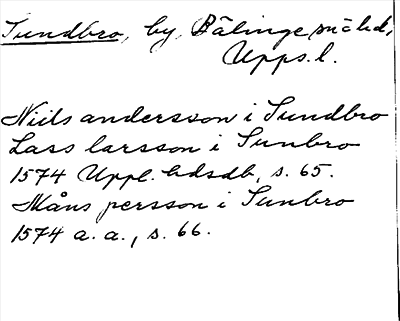 Sundbro, by, Bälinge sn o hd,
Upps. l.
Niils andersson i Sundbro
Lass larsson i Sunbro
1574 Uppl. hdsdb, s. 65.
Måns persson i Sunbro
1574 a. a., s. 66.